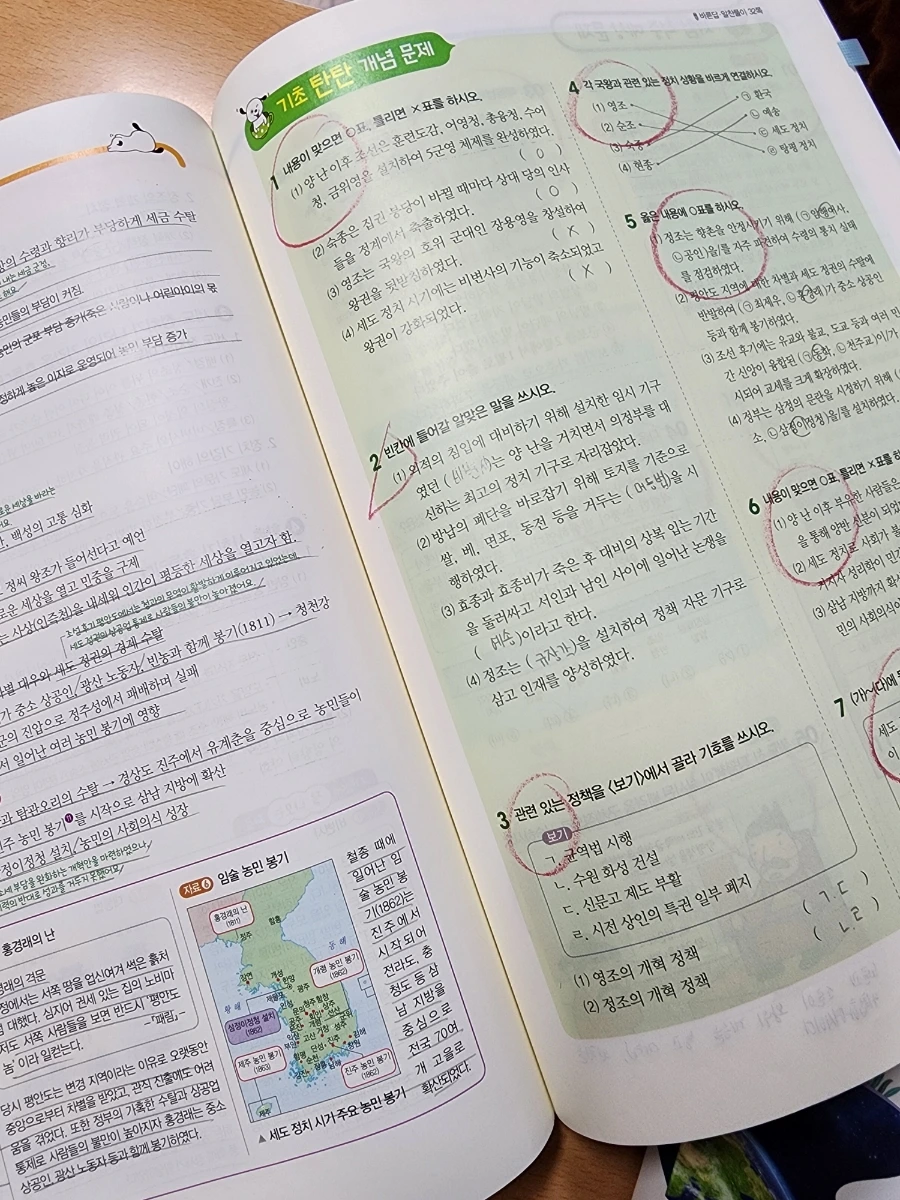 의 수령과 향리가 부당하게 세금 수탈
농민들의 부담이 커짐.
농민의 군포 부담 증가(죽은 사람이나 어린아이의 몫
정하게 높은 이자로 운영되어 농민 부담 증가
로운 세상을 바라는
백성의 고통 심화
정씨 왕조가 들어선다고 예언
로운 세상을 열고 민중을 구제
는 사상(인즉천)을 내세워 인간이 평등한 세상을 열고자 함.
조선 후기 평안도에서는 청과의 무역이 활발하게 이루어지고 있었는데,
세도 정권의 상공업 통제로 사람들의 불만이 높아졌어요.
별 대우와 세도 정권의 경제 수탈
가 중소 상공인/광산 노동자/빈농과 함께 봉기(1811) → 청천강
군의 진압으로 정주성에서 패배하며 실패
서 일어난 여러 농민 봉기에 영향
과 탐관오리의 수탈 → 경상도 진주에서 유계춘을 중심으로 농민들이
진주 농민 봉기를 시작으로 삼남 지방에 확산
정이정청 설치/농민의 사회의식 성장
조세 부담을 완화하는 개혁안을 마련하였으나
세력의 반대로 성과를 거두지 못했어요!
홍경래의 난
경래의 격문
정에서는 서쪽 땅을 업신여겨 썩은 흙처
대했다. 심지어 권세 있는 집의 노비마
저도 서쪽 사람들을 보면 반드시 '평안도
놈'이라 일컫는다.
-「패림」-
당시 평안도는 변경 지역이라는 이유로 오랫동안
중앙으로부터 차별을 받았고, 관직 진출에도 어려
움을 겪었다. 또한 정부의 가혹한 수탈과 상공업
통제로 사람들의 불만이 높아지자 홍경래는 중소
상공인, 광산 노동자 등과 함께 봉기하였다.
자료 6 임술 농민 봉기
홍경래의 난
(1811)
함흥
정주
동해
개령 농민 봉기
(1862)
황해
개성
한양
광주
삼정이정청 설치
(1862)
제주 농민 봉기
(1863)
진주 농민 봉기
(1862)
제주
▲ 세도 정치 시기 주요 농민 봉기
철종 때에
일어난 임
술 농민 봉
기(1862)는
진주에서
시작되어
전라도, 충
청도 등 삼
남 지방을
중심으로
전국 70여
개 고을로
확산되었다.
바른답·알찬풀이 32쪽
기초 탄탄 개념 문제
1 내용이 맞으면 ○표, 틀리면 ×표를 하시오.
(1) 양 난 이후 조선은 훈련도감, 어영청, 총융청, 수어
청, 금위영을 설치하여 5군영 체제를 완성하였다.
( O )
(2) 숙종은 집권 붕당이 바뀔 때마다 상대 당의 인사
들을 정계에서 축출하였다. ( O )
(3) 영조는 국왕의 호위 군대인 장용영을 창설하여
왕권을 뒷받침하였다. ( X )
(4) 세도 정치 시기에는 비변사의 기능이 축소되었고
왕권이 강화되었다. ( X )
2 빈칸에 들어갈 알맞은 말을 쓰시오.
(1) 외적의 침입에 대비하기 위해 설치한 임시 기구
였던 ( 비변사 )는 양 난을 거치면서 의정부를 대
신하는 최고의 정치 기구로 자리잡았다.
(2) 방납의 폐단을 바로잡기 위해 토지를 기준으로
쌀, 베, 면포, 동전 등을 거두는 ( 대동법 )을 시
행하였다.
(3) 효종과 효종비가 죽은 후 대비의 상복 입는 기간
을 둘러싸고 서인과 남인 사이에 일어난 논쟁을
( 예송 )이라고 한다.
(4) 정조는 ( 규장각 )을 설치하여 정책 자문 기구로
삼고 인재를 양성하였다.
3 관련 있는 정책을 <보기>에서 골라 기호를 쓰시오.
보기
ㄱ. 균역법 시행
ㄴ. 수원 화성 건설
ㄷ. 신문고 제도 부활
ㄹ. 시전 상인의 특권 일부 폐지
(1) 영조의 개혁 정책 ( ㄱ, ㄷ )
(2) 정조의 개혁 정책 ( ㄴ, ㄹ )
4 각 국왕과 관련 있는 정치 상황을 바르게 연결하시오.
(1) 영조 ㉠ 환국
(2) 순조 ㉡ 예송
(3) 숙종 ㉢ 세도 정치
(4) 현종 ㉣ 탕평 정치
5 옳은 내용에 ○표를 하시오.
(1) 정조는 향촌을 안정시키기 위해 (㉠ 암행어사,
㉡ 공인)을/를 자주 파견하여 수령의 통치 실태
를 점검하였다.
(2) 평안도 지역에 대한 차별과 세도 정권의 수탈에
반발하여 (㉠ 최제우, ㉡ 홍경래)가 중소 상공인
등과 함께 봉기하였다.
(3) 조선 후기에는 유교와 불교, 도교 등과 여러 민
간 신앙이 융합된 (㉠ 동학, ㉡ 천주교)이/가
시되어 교세를 크게 확장하였다.
(4) 정부는 삼정의 문란을 시정하기 위해 (
소, ㉡ 삼정이정청)을/를 설치하였다.
6 내용이 맞으면 ○표, 틀리면 ×표를 하
(1) 양 난 이후 부유한 사람들은
을 통해 양반 신분이 되었
(2) 세도 정치로 사회가 불
지자 성리학이 민간
(3) 삼남 지방까지 확산
민의 사회의식이
7 (가)~(다)에
세도
이